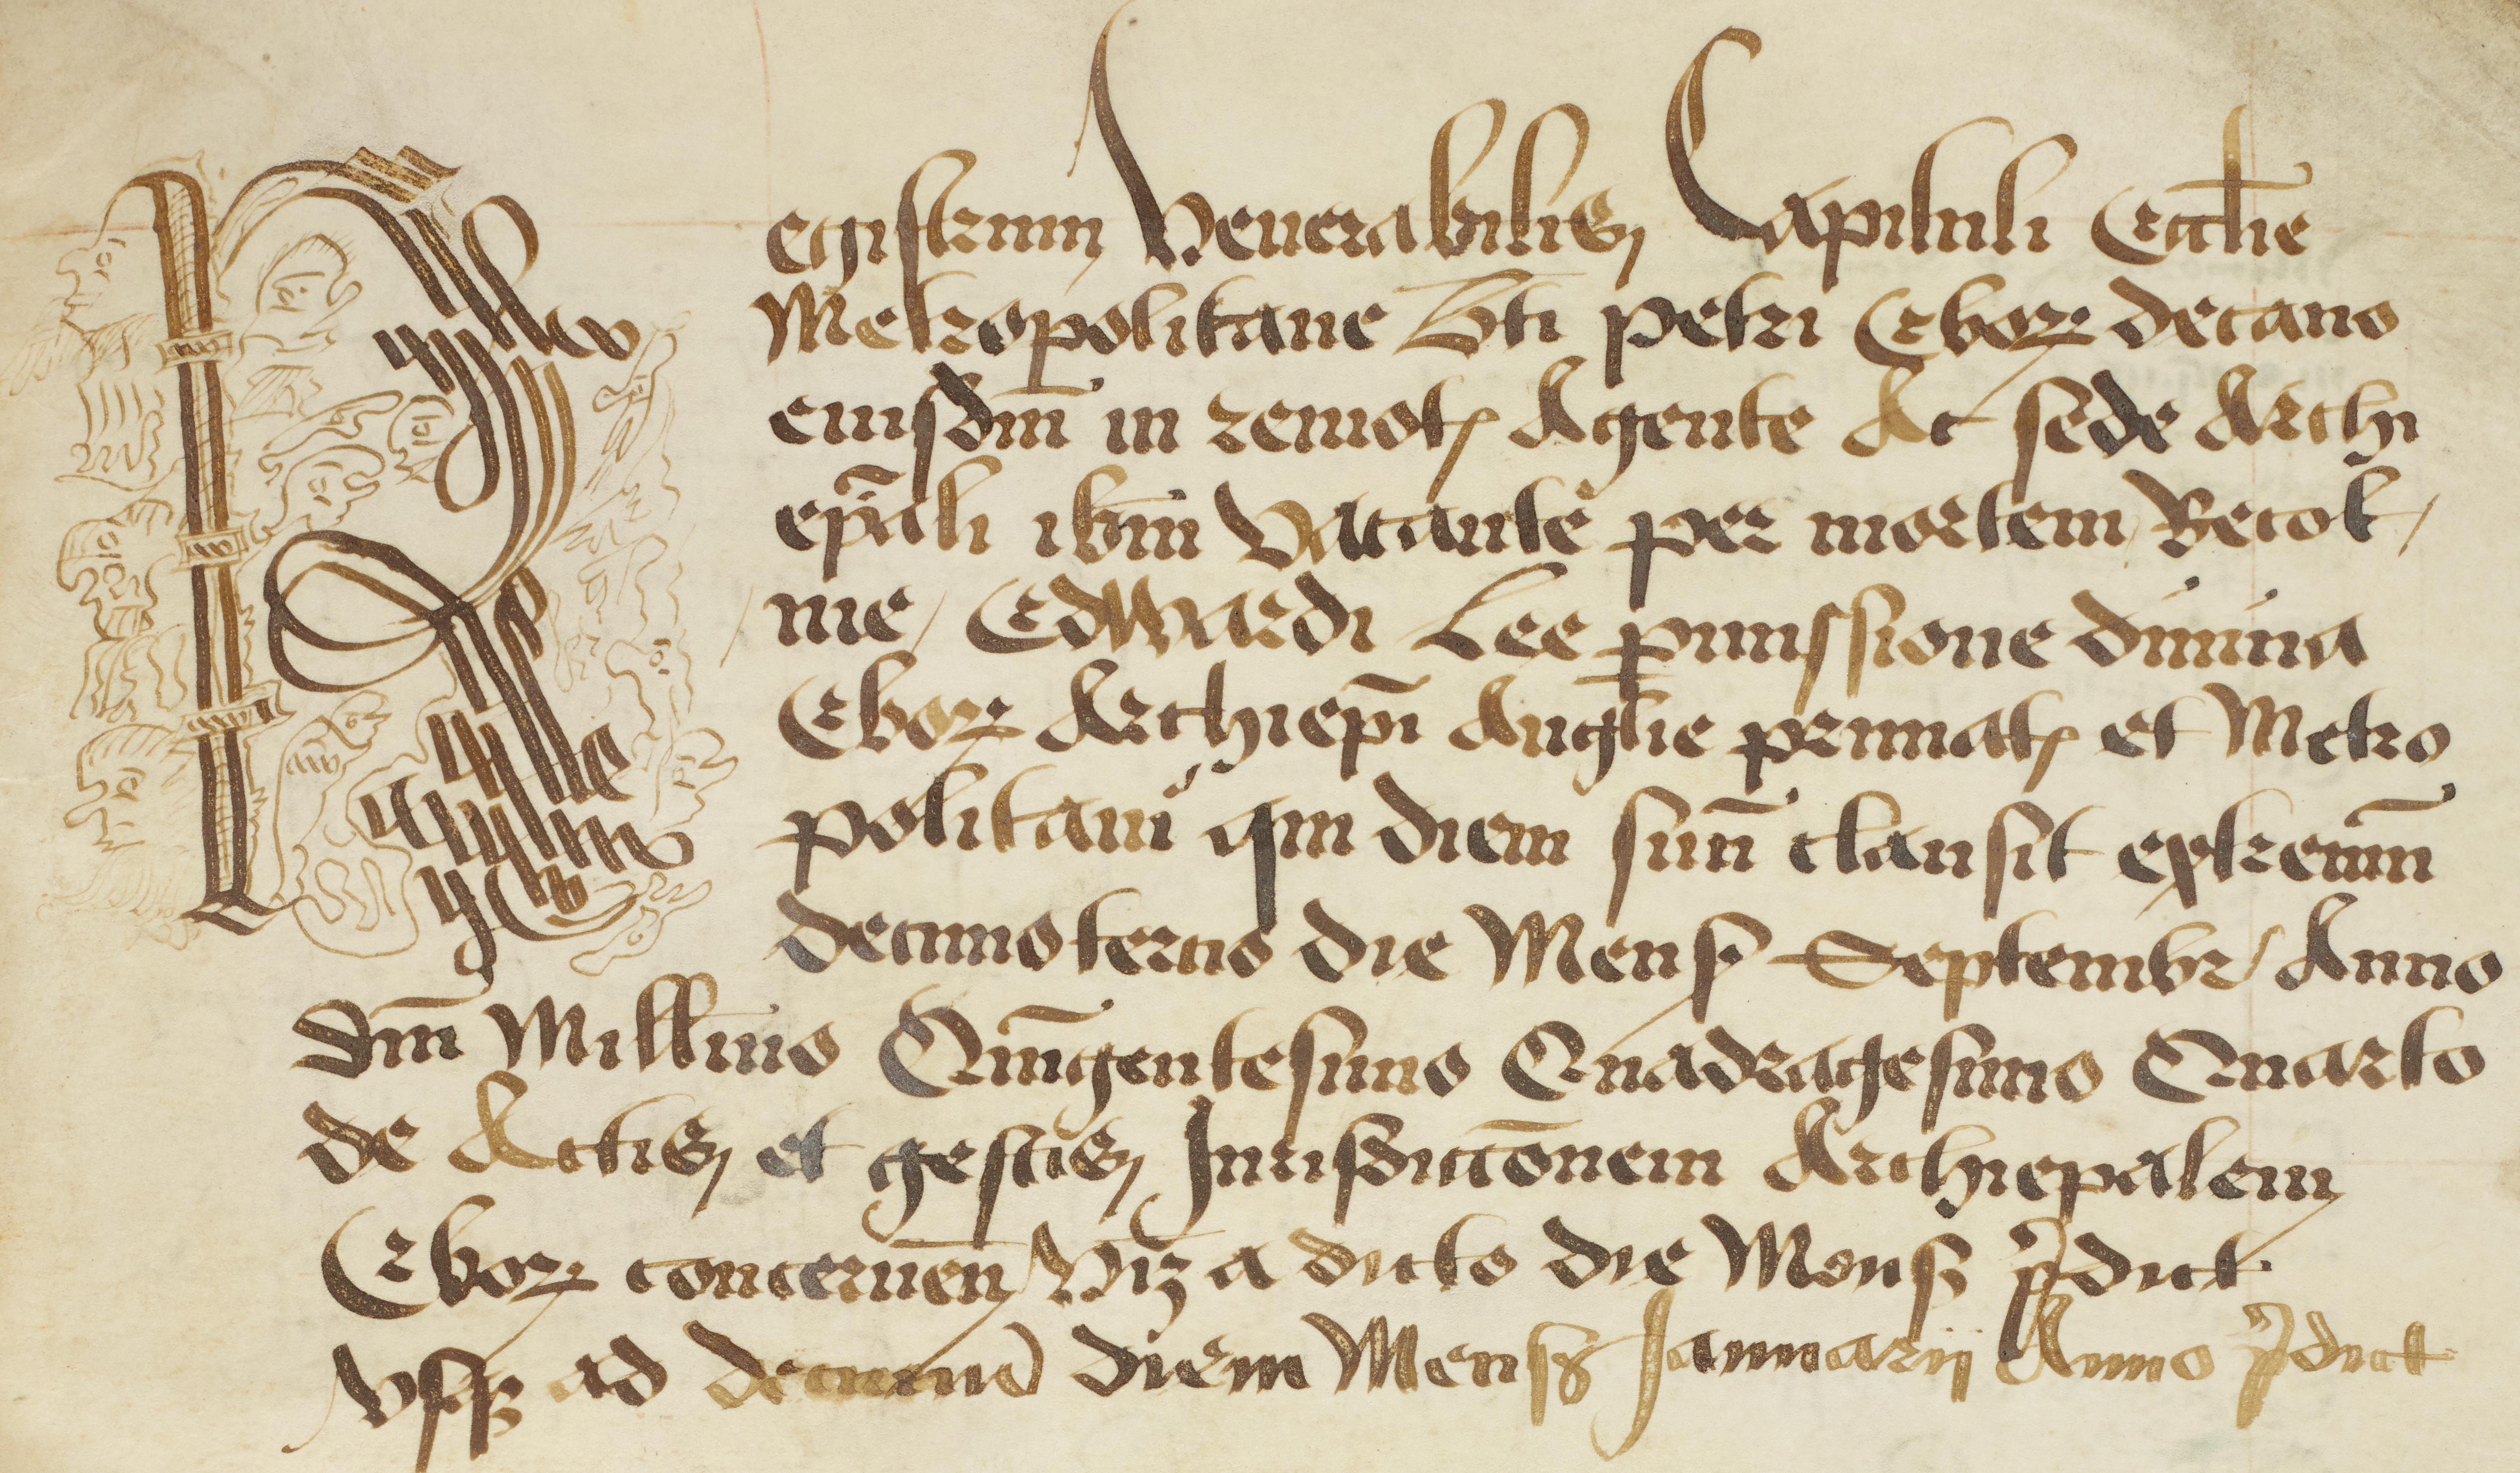 Registrum Venerabilis Capituli Eccl̄ie
Metropolitane Bt̄i Petri Ebor decano
eiusdm̄ in remotꝭ Agente Ac sede Archi
ep̄ali ibm̄ Vacante per mortem Recol
me Edwardi Lee ꝑmissione diuina
Ebor Archiep̄i Angl̄ie primatꝭ et Metro
politani qui diem suū clausit extremū
decimotercio die Mensꝭ Septembr Anno
Dm̄ Millimō Quīngentesimo Quadragesimo Quarto
de Actis et gestis Jurisdictōnem Archiepalem
Ebor concernen̄ Viz a dicto die Mensꝭ p̄dict
vsqꝫ ad decimū diem Mensꝭ Januarii Anno p̄dict